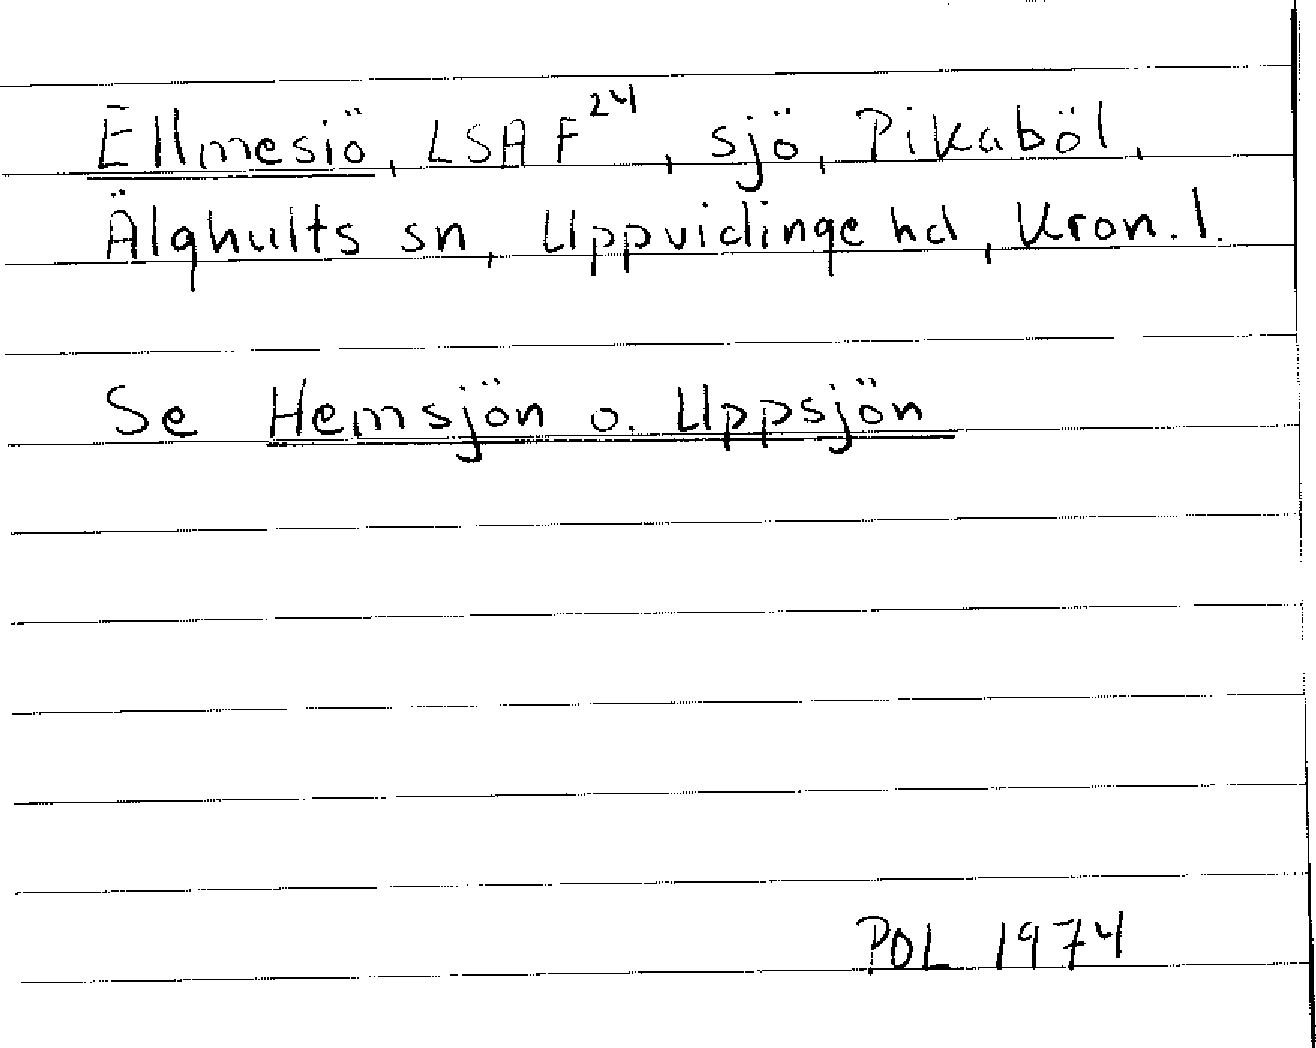 Ellmesiö, LSA F²⁴, sjö, Pikaböl,
Älghults sn, Uppvidinge hd, Kron. l.
Se Hemsjön o. Uppsjön
POL 1974